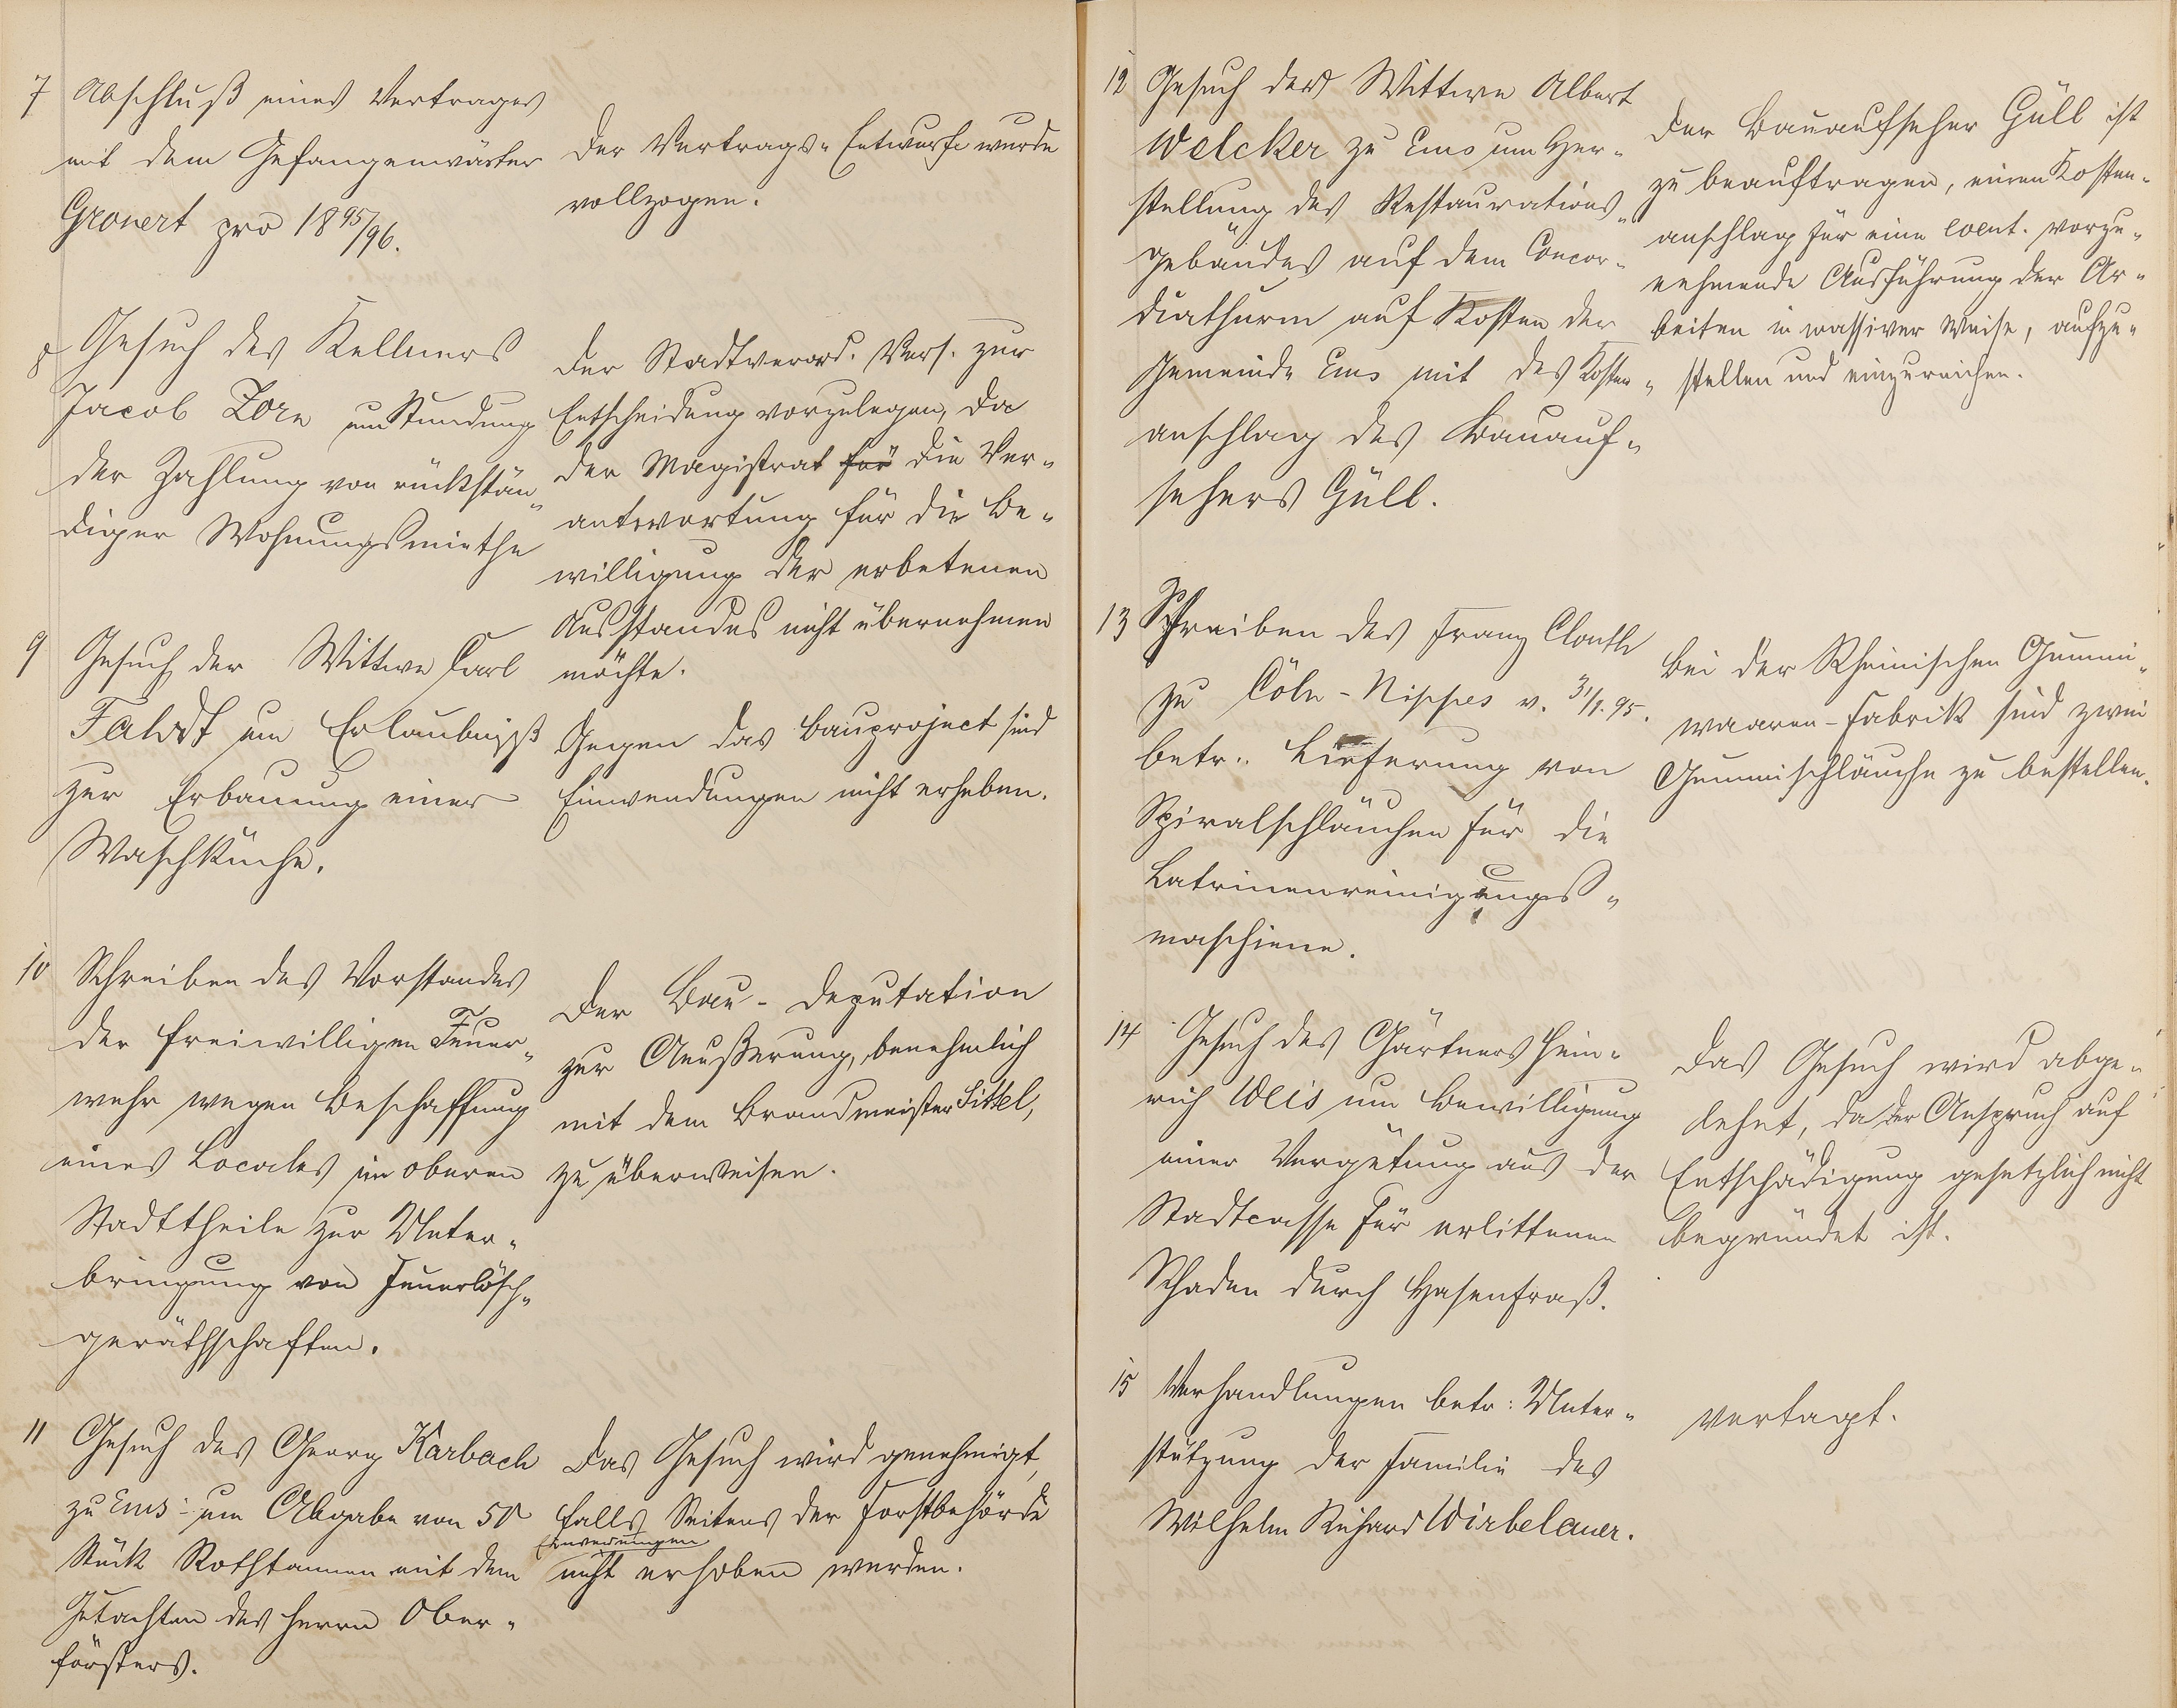 7 Abschluß eines Vertrages
mit dem Gefangenwärter
Gronert pro 1895/96.
Der Vertrags-Entwurf wurde
vollzogen.
8 Gesuch des Kellners
Jacob Zorn um Stundung
der Zahlung von rückstän-
diger Wohnungsmiethe
Der Stadtverord. Vers. zur
Entscheidung vorzulegen, da
der Magistrat für die Ver-
antwortung für die Be-
willigung der erbetenen
Ausstandes nicht übernehmen
möchte.
9 Gesuch der Wittwe Carl
um Erlaubniß
zur Erbauung einer
Waschküche.
Gegen das Bauproject sind
Einwendungen nicht erheben.
10 Schreiben des Vorstandes
der freiwilligen Feuer-
wehr wegen Beschaffung
eines Locales im oberen
Stadttheile zur Unter-
bringung von Feuerlösch-
geräthschaften.
Der Bau-Deputation
zur Aeußerung, benehmlich
mit dem Brandmeister Sittel,
zu überweisen.
11 Gesuch des Georg Karbach
zu Ems um Abgabe von 50
Stück Rothtannen mit dem
Gutachten des Herrn Ober-
försters.
Das Gesuch wird genehmigt,
falls Seitens der Forstbehörde
Einwendungen
nicht erhoben werden.
12 Gesuch der Wittwe Albert
Welcker zu Ems um Her-
stellung des Restaurations-
gebäudes auf dem Concor-
diathurm auf Kosten der
Gemeinde Ems mit des Kosten-
anschlag des Bauauf-
sehers Güll.
Der Bauaufseher Güll ist
zu beauftragen, einen Kosten-
anschlag für eine event. vorzu-
nehmende Ausführung der Ar-
beiten in massiver Weise, aufzu-
stellen und einzureichen.
13 Schreiben des Franz Clouth
zu Cöln-Nippes v. 31/1. 95.
betr.: Lieferung von
Spiralschläuchen für die
Latrinenreinigungs-
maschiene.
Bei der Rheinischen Gummi-
waaren-Fabrik sind zwei
Gummischläuche zu bestellen.
14 Gesuch des Gärtners Hein-
rich Weis um Bewilligung
einer Vergütung aus der
Stadtcasse für erlittenen
Schaden durch Hasenfraß.
Das Gesuch wird abge-
lehnt, da der Anspruch auf
Entschädigung gesetzlich nicht
begründet ist.
15 Verhandlungen betr: Unter-
stützung der Familie des
Wilhelm Richard Wirbelauer.
Vertagt.